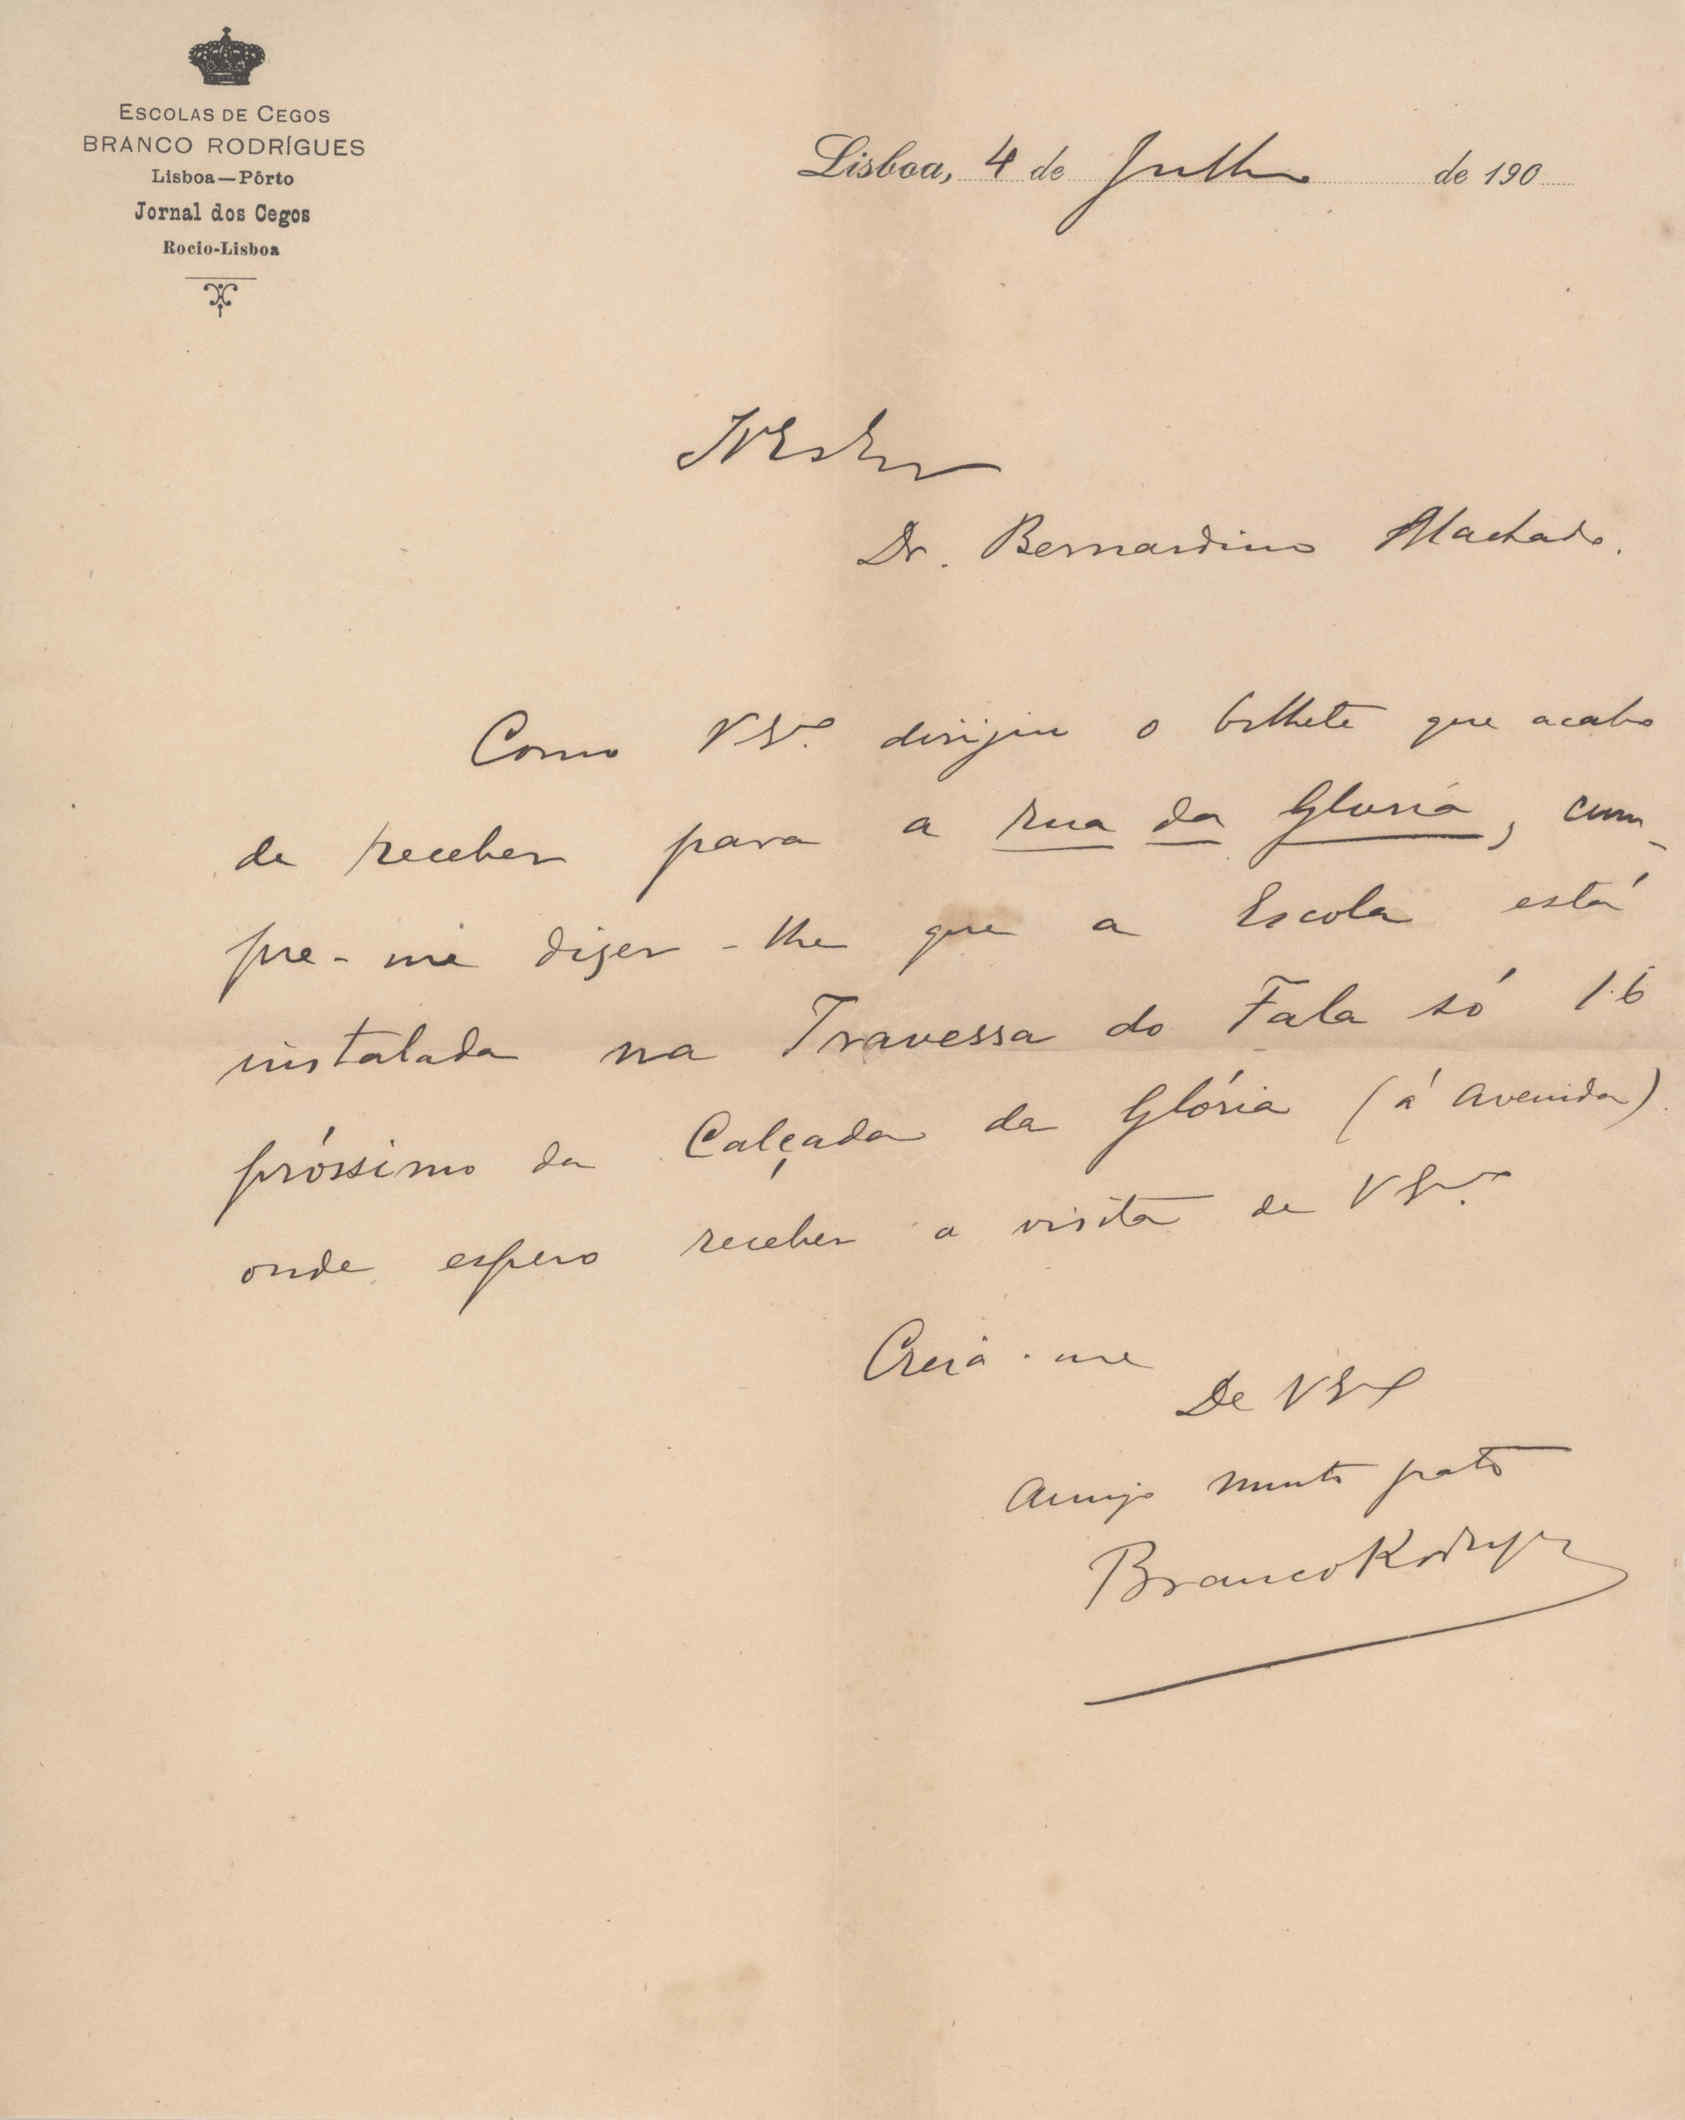 ESCOLAS DE CEGOS
BRANCO RODRÍGUES
Lisboa—Pôrto
Jornal dos Cegos
Rocio-Lisboa
Lisboa, 4 de Julho de 190
Dr. Bernardino Machado.
Como V Ex.ª dirijiu o bilhete que acabo
de receber para a rua da Gloria, cum-
pre-me dizer-lhe que a Escola está
instalada na Travessa do Fala só 16
próssimo da Calçada da Glória (á Avenida)
onde espero receber a visita de V Ex.ª
Creia-me
De V Exª
Amigo muito grato
Branco Rodrigues